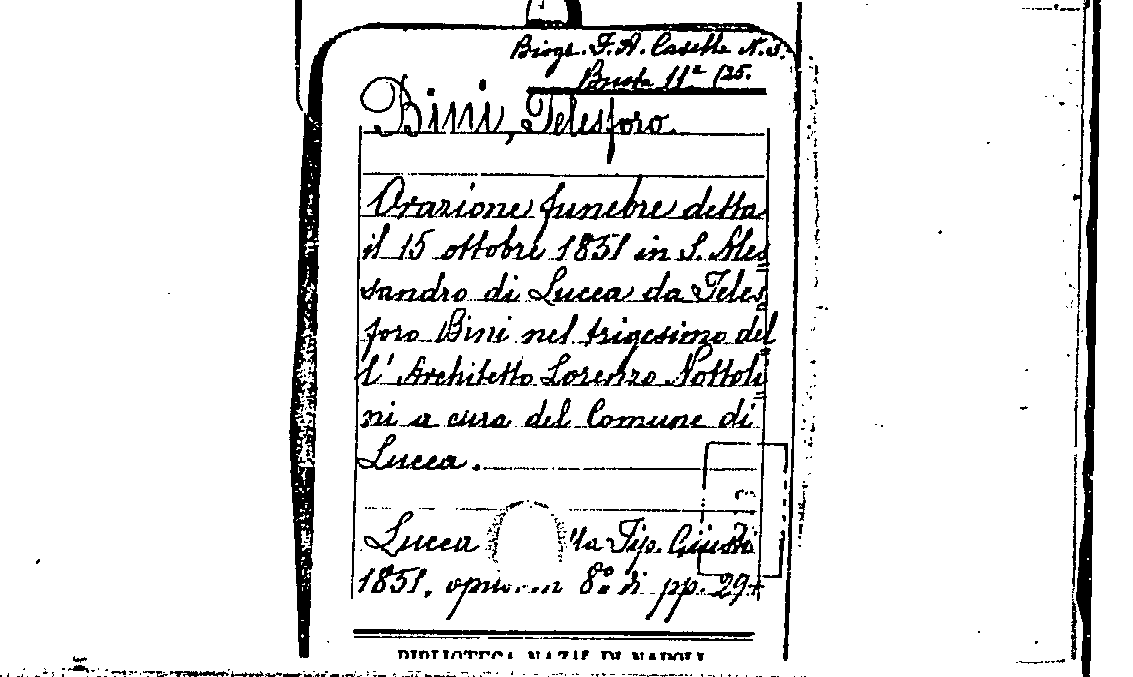 Biogr. F. A. Casella N. S.
Busta 11ª (25.
Bini, Telesforo.
Orazione funebre detta
il 15 ottobre 1851 in S. Ales
sandro di Lucca da Teles
foro Bini nel trigesimo del
l' Architetto Lorenzo Nottoli
ni a cura del Comune di
Lucca.
Lucca lla Tip. Giusti
1851. in 8º di pp. 29
BIBLIOTECA NAZ. DI NAPOLI